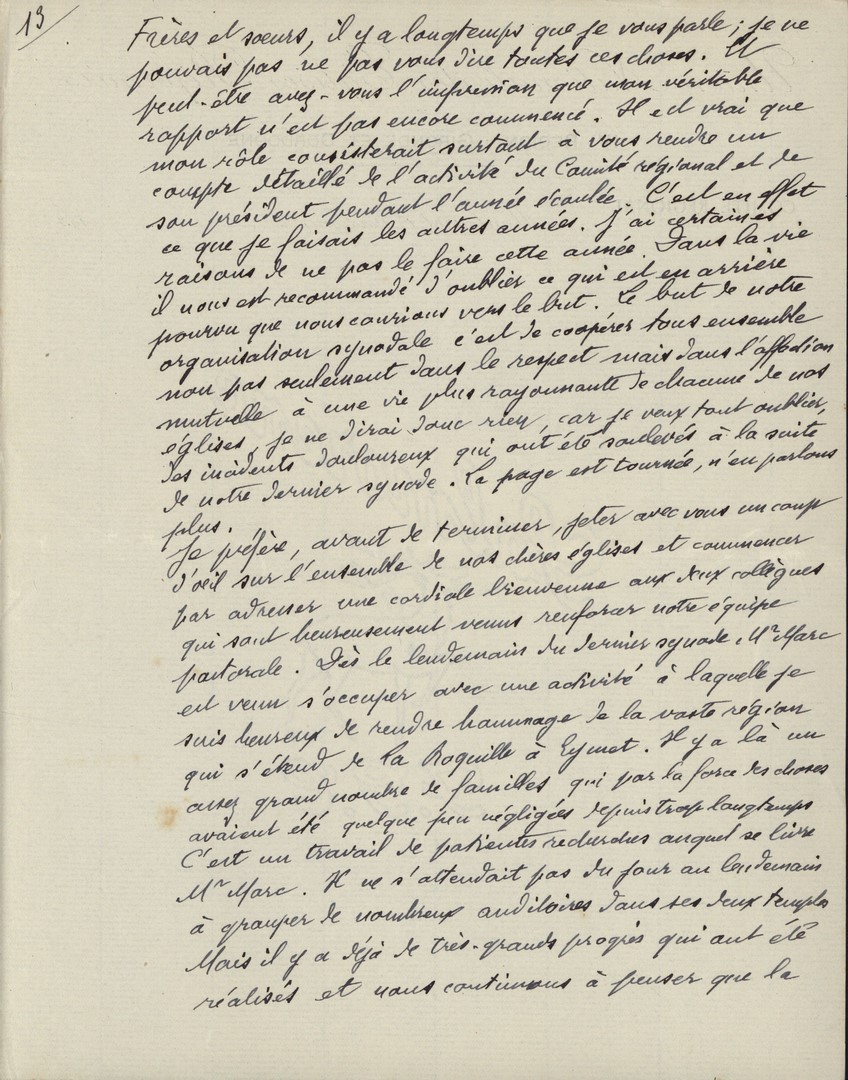 13
Frères et sœurs, il y a longtemps que je vous parle ; je ne
pouvais pas ne pas vous dire toutes ces choses. Et
peut-être avez-vous l'impression que mon véritable
rapport n'est pas encore commencé. Il est vrai que
mon rôle consisterait surtout à vous rendre un
compte détaillé de l'activité du Comité régional et de
son président pendant l'année écoulée. C'est en effet
ce que je faisais les autres années. J'ai certaines
raisons de ne pas le faire cette année. Dans la vie
il nous est recommandé d'oublier ce qui est en arrière
pourvu que nous courions vers le but. Le but de notre
organisation synodale c'est de coopérer tous ensemble
non pas seulement dans le respect mais dans l'affection
mutuelle à une vie plus rayonnante de chacune de nos
églises, je ne dirai donc rien, car je veux tout oublier,
des incidents douloureux qui ont été soulevés à la suite
de notre dernier synode. La page est tournée, n'en parlons
plus.
Je préfère, avant de terminer, jeter avec vous un coup
d'oeil sur l'ensemble de nos chères églises et commencer
par adresser une cordiale bienvenue aux deux collègues
qui sont heureusement venus renforcer notre équipe
pastorale. Dès le lendemain du dernier synode Mr Marc
est venu s'occuper avec une activité à laquelle je
suis heureux de rendre hommage de la vaste région
qui s'étend de La Roquille à Eymet. Il y a là un
assez grand nombre de familles qui par la force des choses
avaient été quelque peu négligées depuis trop longtemps
C'est un travail de patientes recherches auquel se livre
Mr Marc. Il ne s'attendait pas du jour au lendemain
à grouper de nombreux auditoires dans ses deux temples
Mais il y a déjà de très-grands progrès qui ont été
réalisés et nous continuons à penser que la